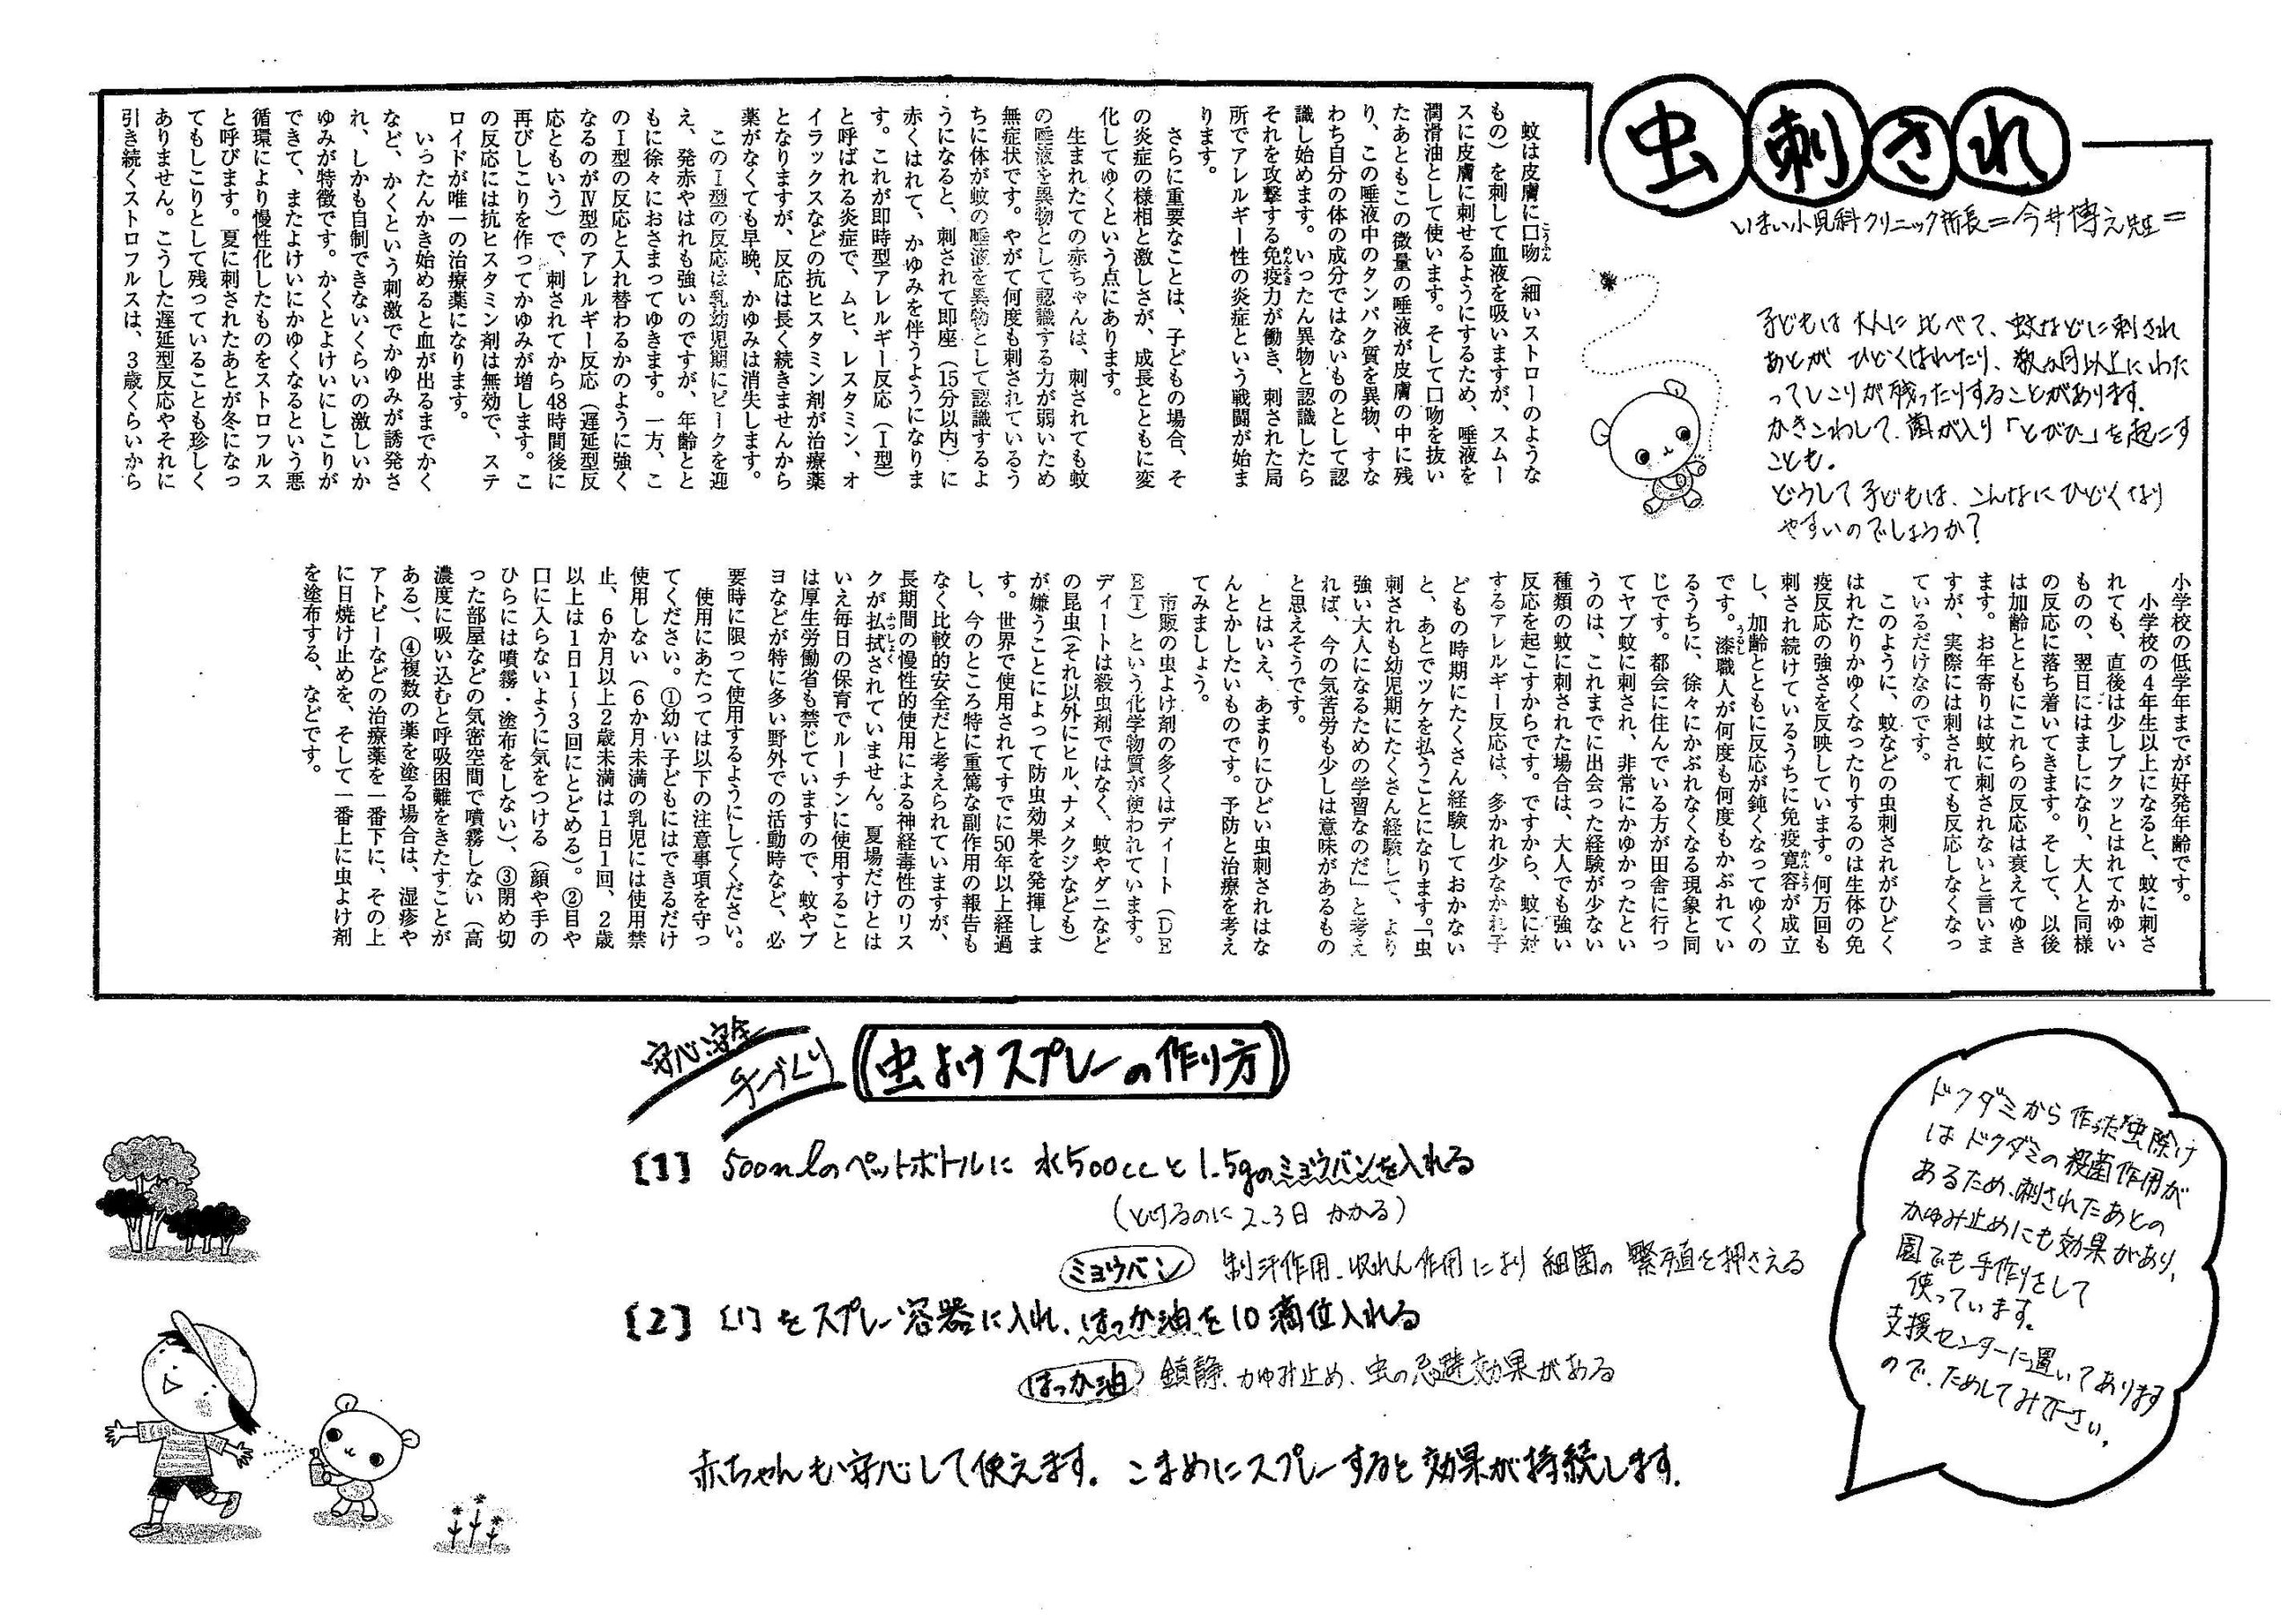 虫刺され
いまい小児科クリニック所長=今井博之先生=
子どもは大人に比べて、蚊などに刺され
あとがひどくはれたり、数か月以上にわた
ってしこりが残ったりすることがあります。
かきこわして、菌が入り「とびひ」を起こす
ことも。
どうして子どもは、こんなにひどくなり
やすいのでしょうか?
蚊は皮膚に口吻(細いストローのような
もの)を刺して血液を吸いますが、スムー
スに皮膚に刺せるようにするため、唾液を
潤滑油として使います。そして口吻を抜い
たあともこの微量の唾液が皮膚の中に残
り、この唾液中のタンパク質を異物、すな
わち自分の体の成分ではないものとして認
識し始めます。いったん異物と認識したら
それを攻撃する免疫力が働き、刺された局
所でアレルギー性の炎症という戦闘が始ま
ります。
さらに重要なことは、子どもの場合、そ
の炎症の様相と激しさが、成長とともに変
化してゆくという点にあります。
生まれたての赤ちゃんは、刺されても蚊
の唾液を異物として認識する力が弱いため
無症状です。やがて何度も刺されているう
ちに体が蚊の唾液を異物として認識するよ
うになると、刺されて即座(15分以内)に
赤くはれて、かゆみを伴うようになりま
す。これが即時型アレルギー反応(Ⅰ型)
と呼ばれる炎症で、ムヒ、レスタミン、オ
イラックスなどの抗ヒスタミン剤が治療薬
となりますが、反応は長く続きませんから
薬がなくても早晩、かゆみは消失します。
このⅠ型の反応は乳幼児期にピークを迎
え、発赤やはれも強いのですが、年齢とと
もに徐々におさまってゆきます。一方、こ
のⅠ型の反応と入れ替わるかのように強く
なるのがⅣ型のアレルギー反応(遅延型反
応ともいう)で、刺されてから48時間後に
再びしこりを作ってかゆみが増します。こ
の反応には抗ヒスタミン剤は無効で、ステ
ロイドが唯一の治療薬になります。
いったんかき始めると血が出るまでかく
など、かくという刺激でかゆみが誘発さ
れ、しかも自制できないくらいの激しいか
ゆみが特徴です。かくとよけいにしこりが
できて、またよけいにかゆくなるという悪
循環により慢性化したものをストロフルス
と呼びます。夏に刺されたあとが冬になっ
てもしこりとして残っていることも珍しく
ありません。こうした遅延型反応やそれに
引き続くストロフルスは、3歳くらいから
小学校の低学年までが好発年齢です。
小学校の4年生以上になると、蚊に刺さ
れても、直後は少しプクッとはれてかゆい
ものの、翌日にはましになり、大人と同様
の反応に落ち着いてきます。そして、以後
は加齢とともにこれらの反応は衰えてゆき
ます。お年寄りは蚊に刺されないと言いま
すが、実際には刺されても反応しなくなっ
ているだけなのです。
このように、蚊などの虫刺されがひどく
はれたりかゆくなったりするのは生体の免
疫反応の強さを反映しています。何万回も
刺され続けているうちに免疫寛容が成立
し、加齢とともに反応が鈍くなってゆくの
です。漆職人が何度も何度もかぶれてい
るうちに、徐々にかぶれなくなる現象と同
じです。都会に住んでいる方が田舎に行っ
てヤブ蚊に刺され、非常にかゆかったとい
うのは、これまでに出会った経験が少ない
種類の蚊に刺された場合は、大人でも強い
反応を起こすからです。ですから、蚊に対
するアレルギー反応は、多かれ少なかれ子
どもの時期にたくさん経験しておかない
と、あとでツケを払うことになります。「虫
刺されも幼児期にたくさん経験して、より
強い大人になるための学習なのだ」と考え
れば、今の気苦労も少しは意味があるもの
と思えそうです。
とはいえ、あまりにひどい虫刺されはな
んとかしたいものです。予防と治療を考え
てみましょう。
市販の虫よけ剤の多くはディート(DE
ET)という化学物質が使われています。
ディートは殺虫剤ではなく、蚊やダニなど
の昆虫(それ以外にヒル、ナメクジなども)
が嫌うことによって防虫効果を発揮しま
す。世界で使用されてすでに50年以上経過
し、今のところ特に重篤な副作用の報告も
なく比較的安全だと考えられていますが、
長期間の慢性的使用による神経毒性のリス
クが払拭されていません。夏場だけとは
いえ毎日の保育でルーチンに使用すること
は厚生労働省も禁じていますので、蚊やブ
ヨなどが特に多い野外での活動時など、必
要時に限って使用するようにしてください。
使用にあたっては以下の注意事項を守っ
てください。①幼い子どもにはできるだけ
使用しない(6か月未満の乳児には使用禁
止、6か月以上2歳未満は1日1回、2歳
以上は1日1~3回にとどめる)。②目や
口に入らないように気をつける(顔や手の
ひらには噴霧・塗布をしない)、③閉め切
った部屋などの気密空間で噴霧しない(高
濃度に吸い込むと呼吸困難をきたすことが
ある)、④複数の薬を塗る場合は、湿疹や
アトピーなどの治療薬を一番下に、その上
に日焼け止めを、そして一番上に虫よけ剤
を塗布する、などです。
安心安全
手づくり
虫よけスプレーの作り方
[1] 500mlのペットボトルに水500ccと1.5gのミョウバンを入れる
(とけるのに2、3日かかる)
ミョウバン 制汗作用、収れん作用により細菌の繁殖を押さえる
[2] [1]をスプレー容器に入れ、はっか油を10滴位入れる
はっか油 鎮静、かゆみ止め、虫の忌避効果がある
赤ちゃんも安心して使えます。こまめにスプレーすると効果が持続します。
ドクダミから作った虫除け
はドクダミの殺菌作用が
あるため、刺されたあとの
かゆみ止めにも効果があり、
園でも手作りをして
使っています。
支援センターに置いてあります
ので、ためしてみて下さい。